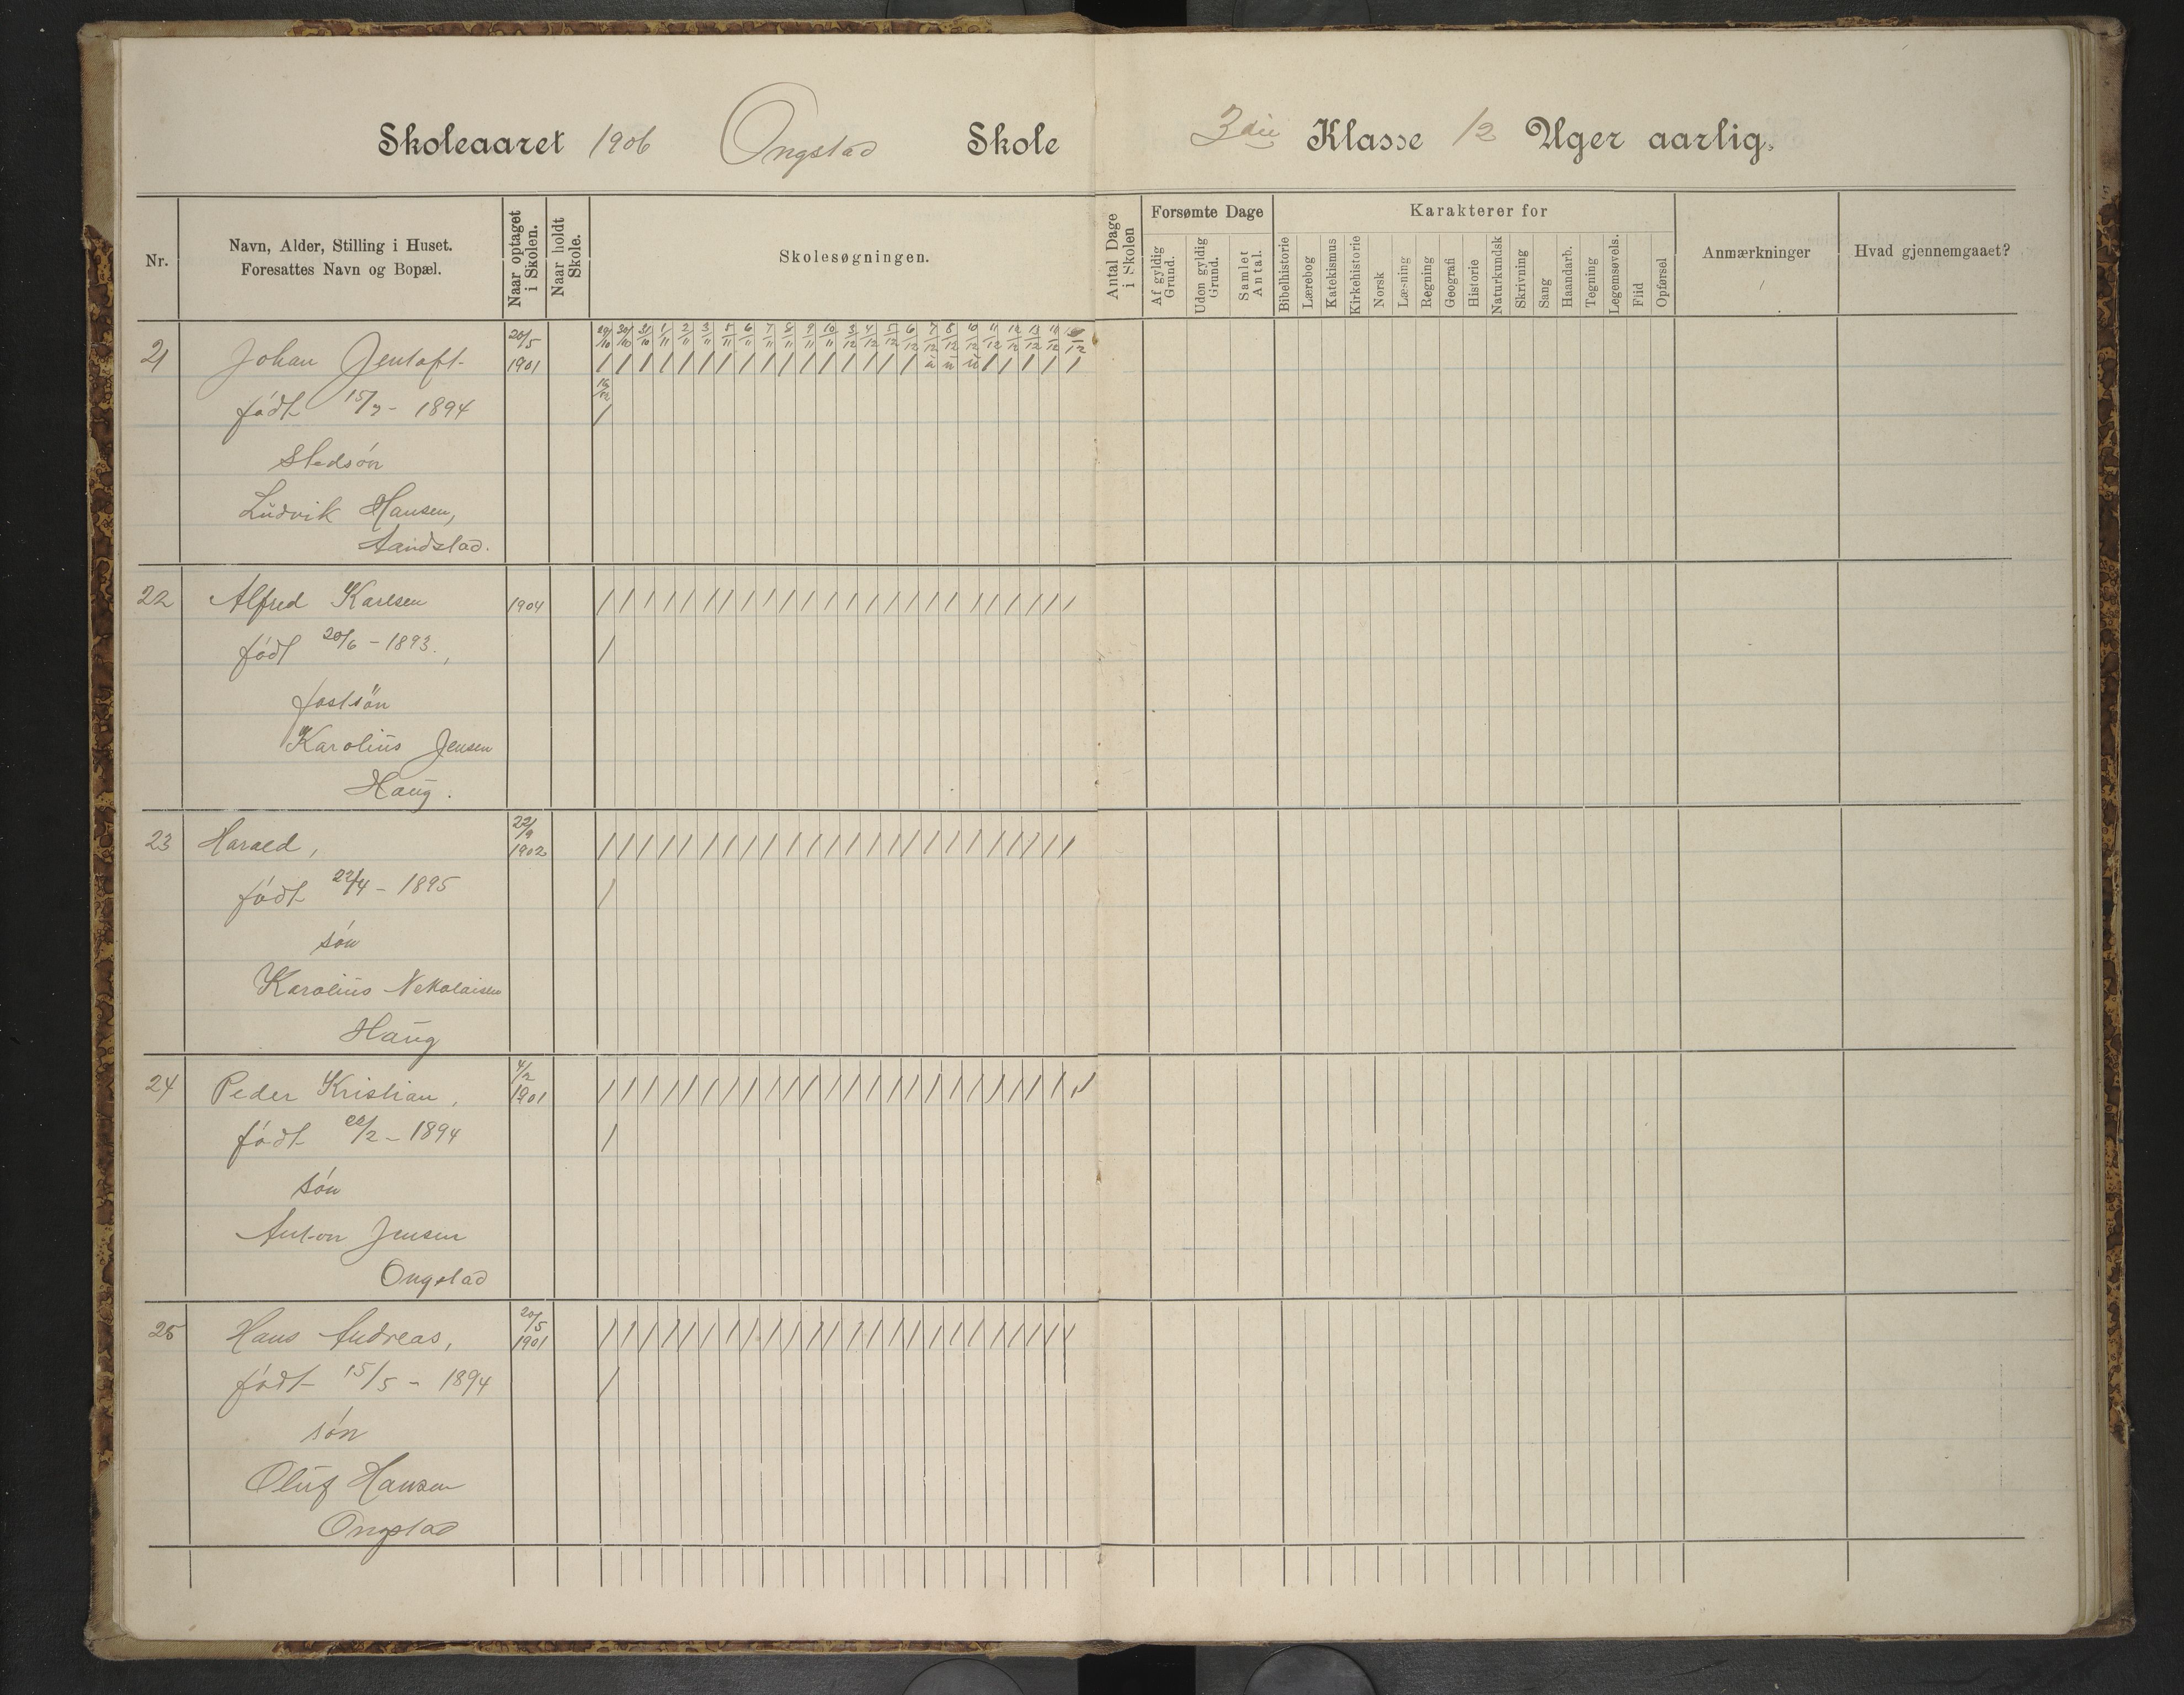 Skoleaaret 1906 Ongstad Skole 3die Klasse 12 Uger aarlig.
Nr.
Navn, Alder, Stilling i Huset.
Foresattes Navn og Bopæl.
Naar optaget
i Skolen.
Naar holdt
Skole.
Skolesøgningen.
Antal Dage
i Skolen
Forsømte Dage
Af gyldig
Grund.
Uden gyldig
Grund.
Samlet
Antal.
Karakterer for
Bibelhistorie
Lærebog
Katekismus
Kirkehistorie
Norsk
Læsning
Regning
Geografi
Historie
Naturkundsk
Skrivning
Sang
Haandarb.
Tegning
Legemsøvels.
Flid
Opførsel
Anmærkninger
Hvad gjennemgaaet?
20/5 29/10 30/10 31/10 1/11 2/11 3/11 5/11 6/11 7/11 8/11 9/11 10/11 3/12 4/12 5/12 6/12 7/12 8/12 10/12 11/12 12/12 13/12 14/12
21 Johan Jentoft 1901 / / / / / / / / / / / / / / / / u u u / / / / /
født 15/7 - 1894 /
Stedsøn
Ludvik Hansen,
Aandstad.
22 Alfred Karlsen 1904 / / / / / / / / / / / / / / / / / / / / / / / /
født 20/6 - 1893. /
fostsøn
Karolius Jensen
Haug.
22/9
23 Harald, 1902 / / / / / / / / / / / / / / / / / / / / / / / /
født 22/4 - 1895 /
søn
Karolius Nekolaisen
Haug
4/2
24 Peder Kristian, 1901 / / / / / / / / / / / / / / / / / / / / / / / /
født 22/2 - 1894 /
søn
Anton Jensen
Ongstad
20/5
25 Hans Andreas, 1901 / / / / / / / / / / / / / / / / / / / / / / / /
født 15/5 - 1894 /
søn
Oluf Hansen
Ongstad